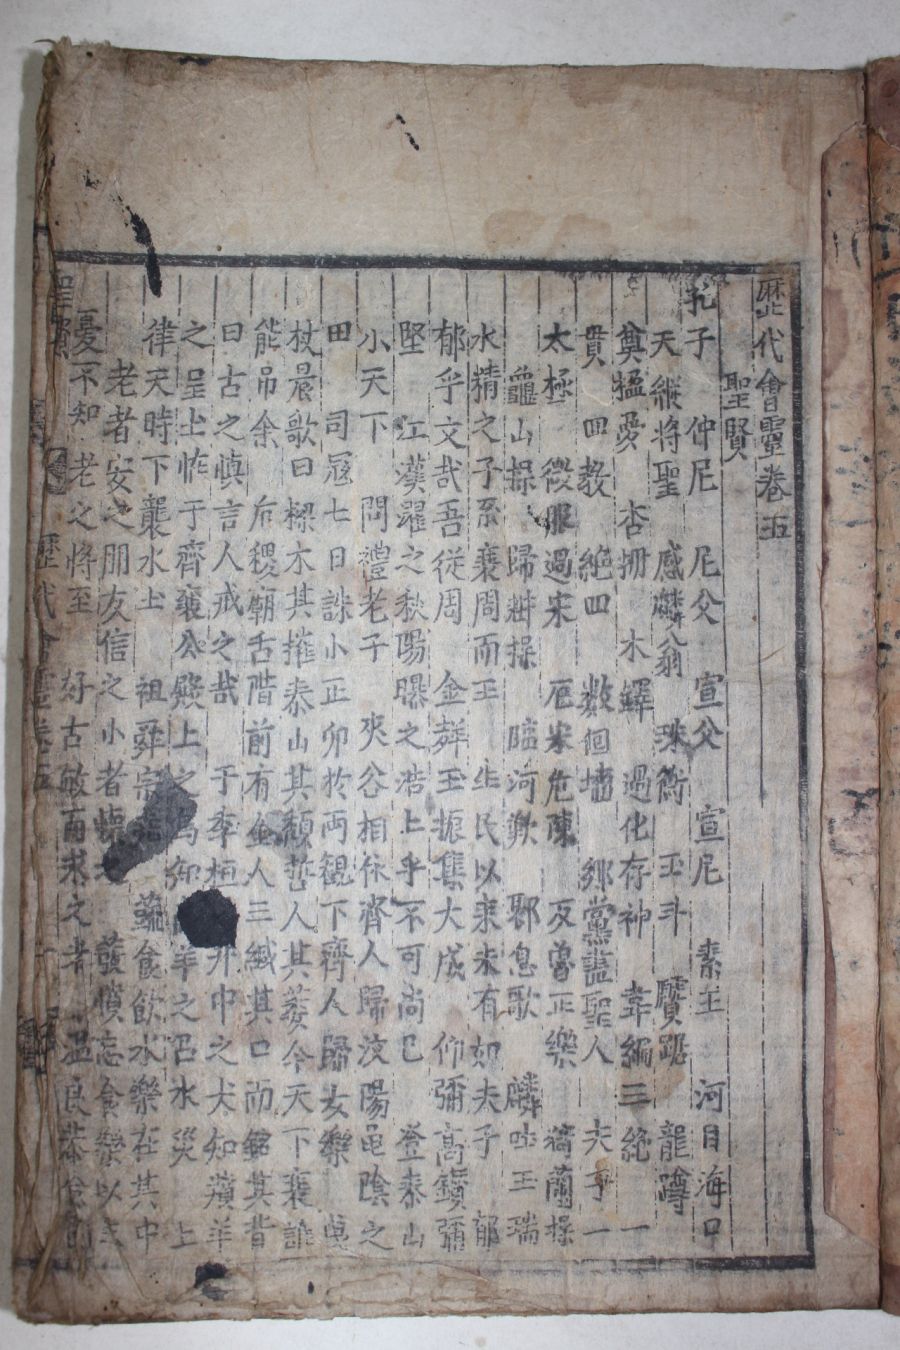 歷代會靈卷五
聖賢
孔子 仲尼 尼父 宣父 宣尼 素王 河目海口
天縱將聖 感麟翁 珠衡 玉斗 虎踞 龍蹲
奠楹憂 杏壇 木鐸 過化存神 韋編三絶 一
貫 四教 絶四 數仞墻 鄉黨謚聖人 夫子一
太極 微服過宋 厄宋危陳 反魯正樂 猗蘭操
龜山操 歸操 臨河歎 息歌 麟吐玉瑞
水精之子系衰周而王 生民以來未有如夫子 郁
郁乎文哉吾從周 金聲玉振集大成 仰彌高鑽彌
堅 江漢濯之秋陽曝之浩上乎不可尚已 登泰山
小天下 問禮老子 夾谷相休齊人歸汶陽龜陰之
田 司寇七日誅小正卯於両觀下齊人歸女樂 曳
杖晨歌曰樑木其摧泰山其頹哲人其萎今天下衰誰
能吊余 后稷廟舌階前有金人三緘其口而銘其背
曰古之愼言人戒之哉 于季桓井中之犬知羵羊
之呈上怍于齊襄公殿上之知羊之召水災 上
律天時下襲水土 祖舜宗 蔬食飮水樂在其中
老者安之朋友信之小者懷 發憤忘食樂以
憂不知老之將至 好古敏而求之者 溫良恭儉
聖賢
歷代會靈卷五